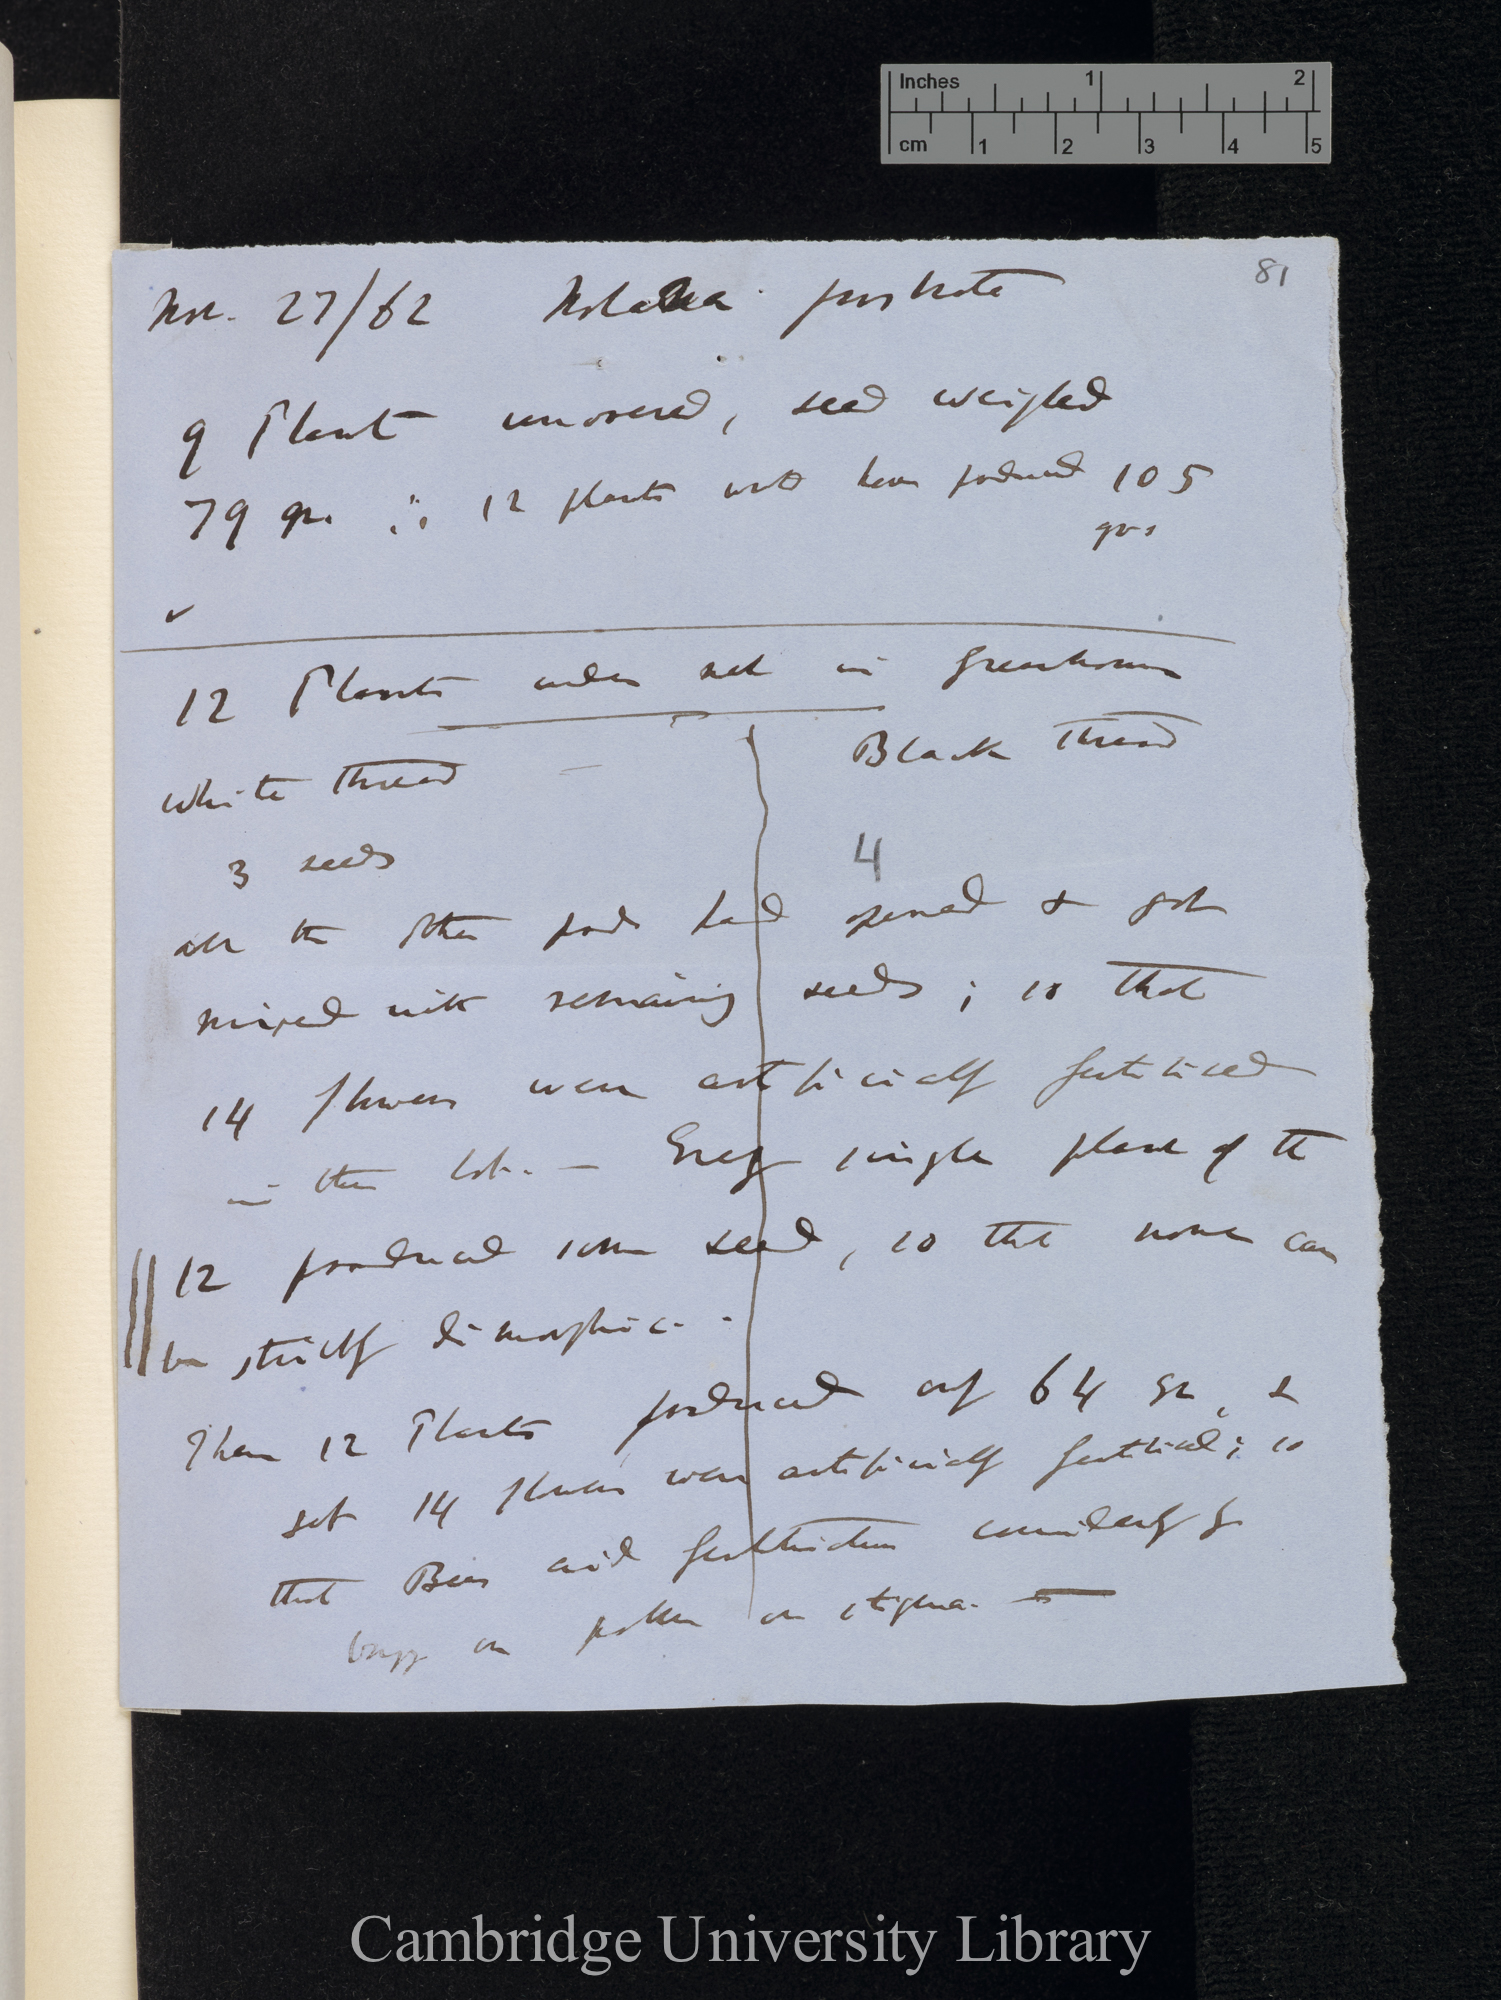 Inches 1 2
cm 1 2 3 4 5
81
Nov. 27/62 Nolana prostrata
9 Plants uncovered, seed weighed
79 gr. ∴ 12 plants wd have produced 105
grs
✓
12 Plants under net in Greenhouse
White thread Black thread
3 seeds 4
all the other pods had opened & got
mixed with remaining seeds; so that
14 flowers were artificially fertilised
in this lot. — Every single plant of the
12 produced some seed, so that none can
be strictly dimorphic.
These 12 Plants produced only 64 gr, &
yet 14 flowers were artificially fertilised; so
that Bees aid fertilisation considerably by
bringing on pollen on stigma. —
Cambridge University Library